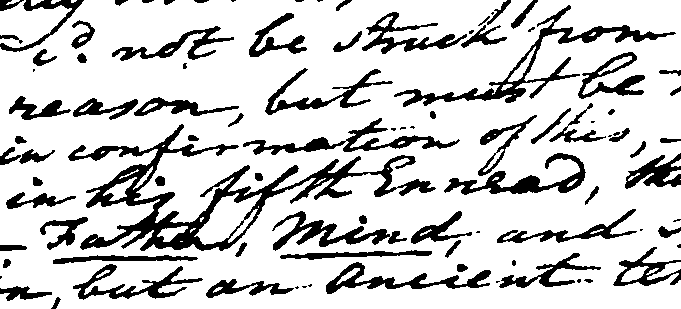 not be struck from
reason, but must be
in confirmation of this,
in his fifth Ennead,
Father, Mind, and
but an ancient